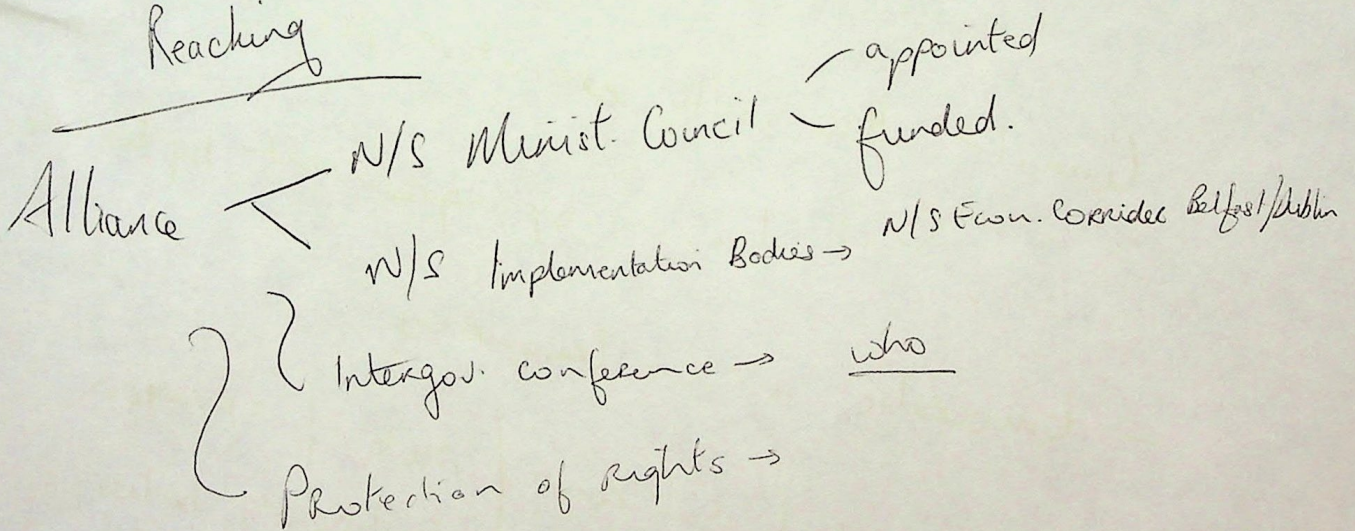 Reaching
appointed
N/S Minist. Council
funded.
Alliance
N/S Implementation Bodies → N/S Econ. Corridor Belfast/Dublin
Intergov. conference → who
Protection of rights →